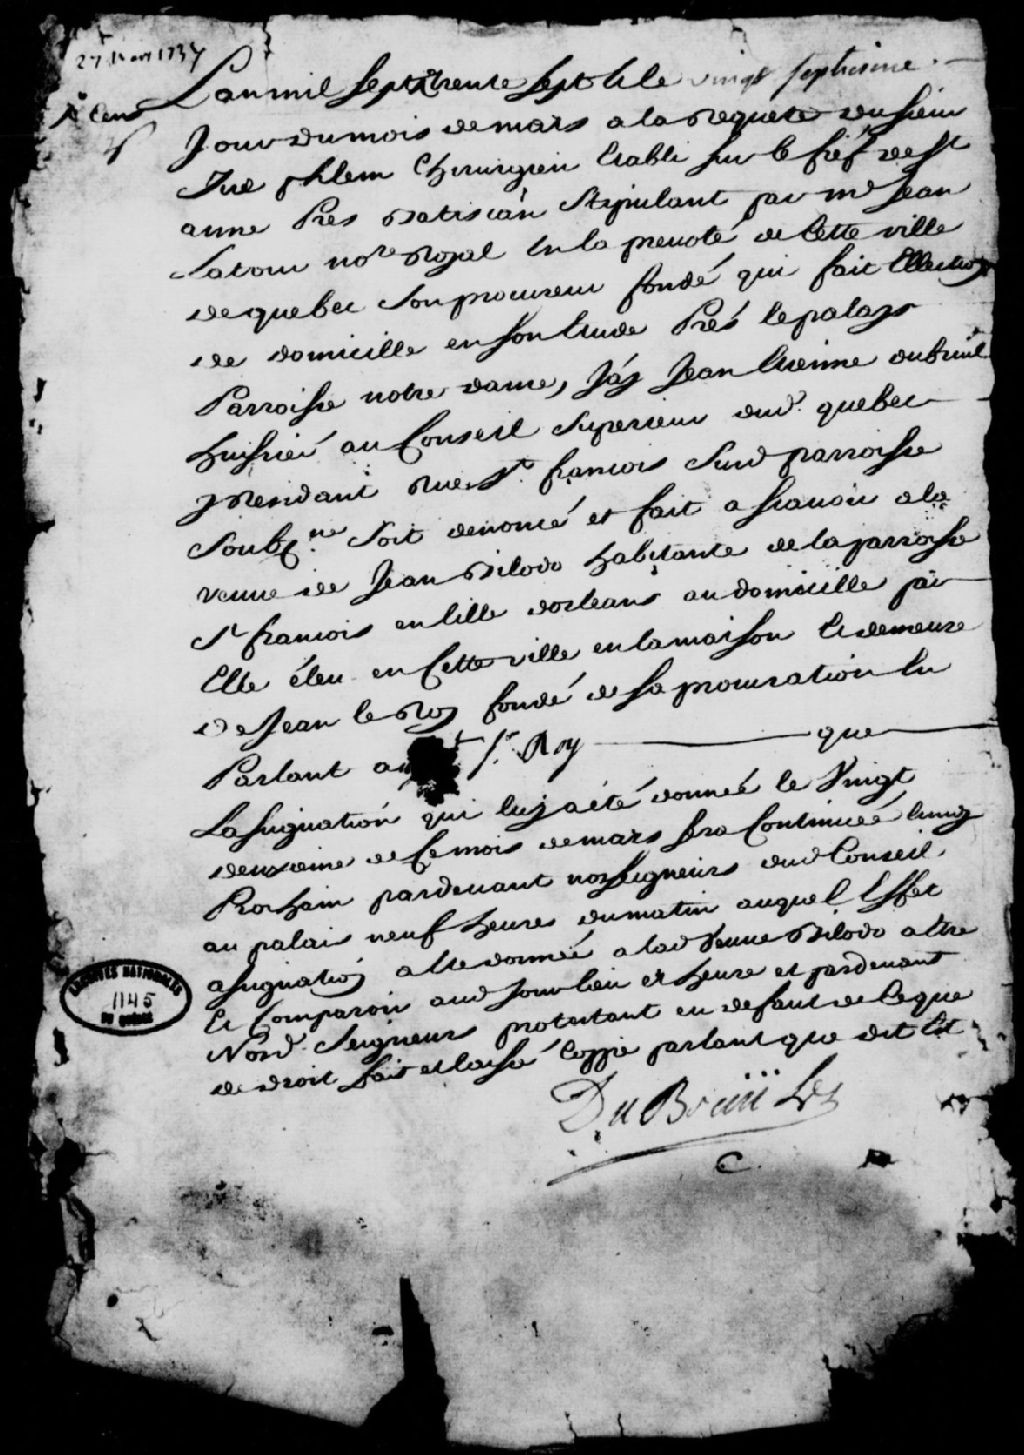 27 Mars 1737
Lan mil Sept Trente Sept Et le vingt septiesme
Jour du mois de mars a la Requete du sieur
Yve phlem Chirurgien Etabli sur le fief de St
anne Pres Batiscan Stipulant par me Jean
Latour nore Royal En la prevoté de Cette ville
de quebec Son procureur fondé qui fait Ellection
de domicille en son Etude Prés le palays
Parroisse notre dame, Jay Jean Etienne dubreuil
huissié au Conseil Superieur dud. quebec
y Residant Rue St. francois Susd parroisse
Soubsne. Soit denoncé et fait a scavoir a la
veuve de Jean Bilodo habitante de la parroisse
St francois en lille dorleans au domicille par
Elle éleu en Cette ville en la maison Et demeure
de Jean le Roy fondé de sa procuration En
Parlant au Sr. Roy que
Lasignation qui luy a été donnée le Vingt
deuxieme de Ce mois de mars sera Continuée lundy
Prochain pardevant nosseigneurs dud Conseil
au palais neuf heures du matin auquel Effet
asignation a Eté donnée a lad veuve Bilodo a Etre
Et Comparoir aud Jour lieu et heure et pardevant
Nosd. Seigneurs protestant en defaut de Ce que
de droit fait et laissé Coppie parlant que dit Est
DuBreüil
C.
ARCHIVES NATIONALES
1145
DU QUÉBEC